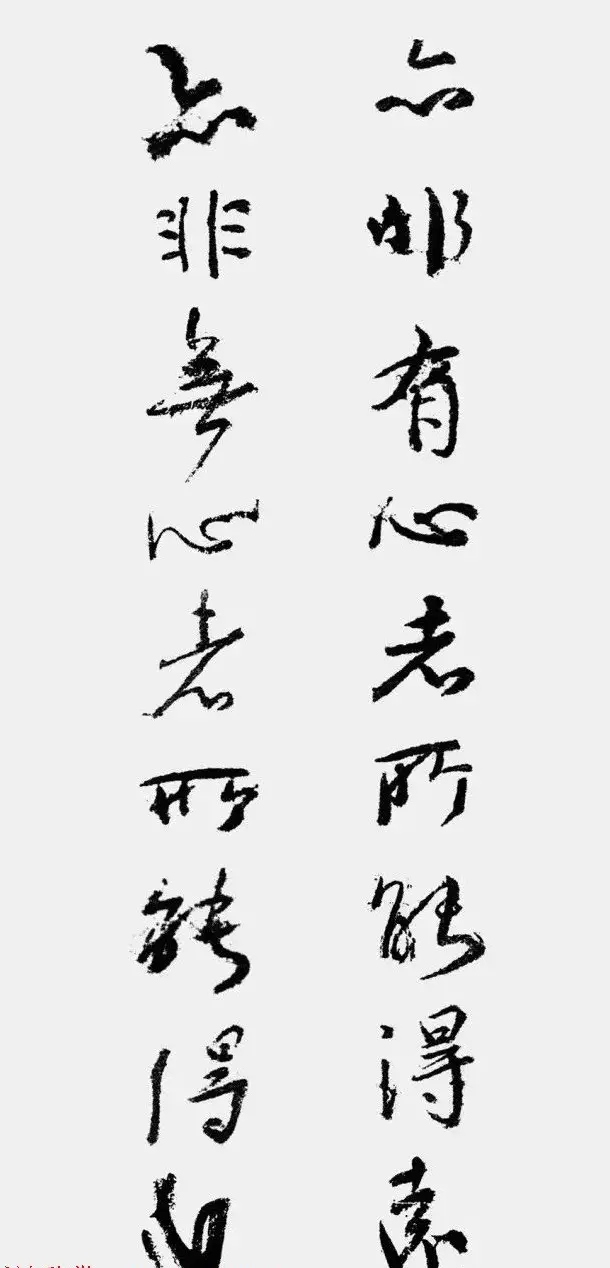 亦非有心者所能得遠
亦非無心者所能得近